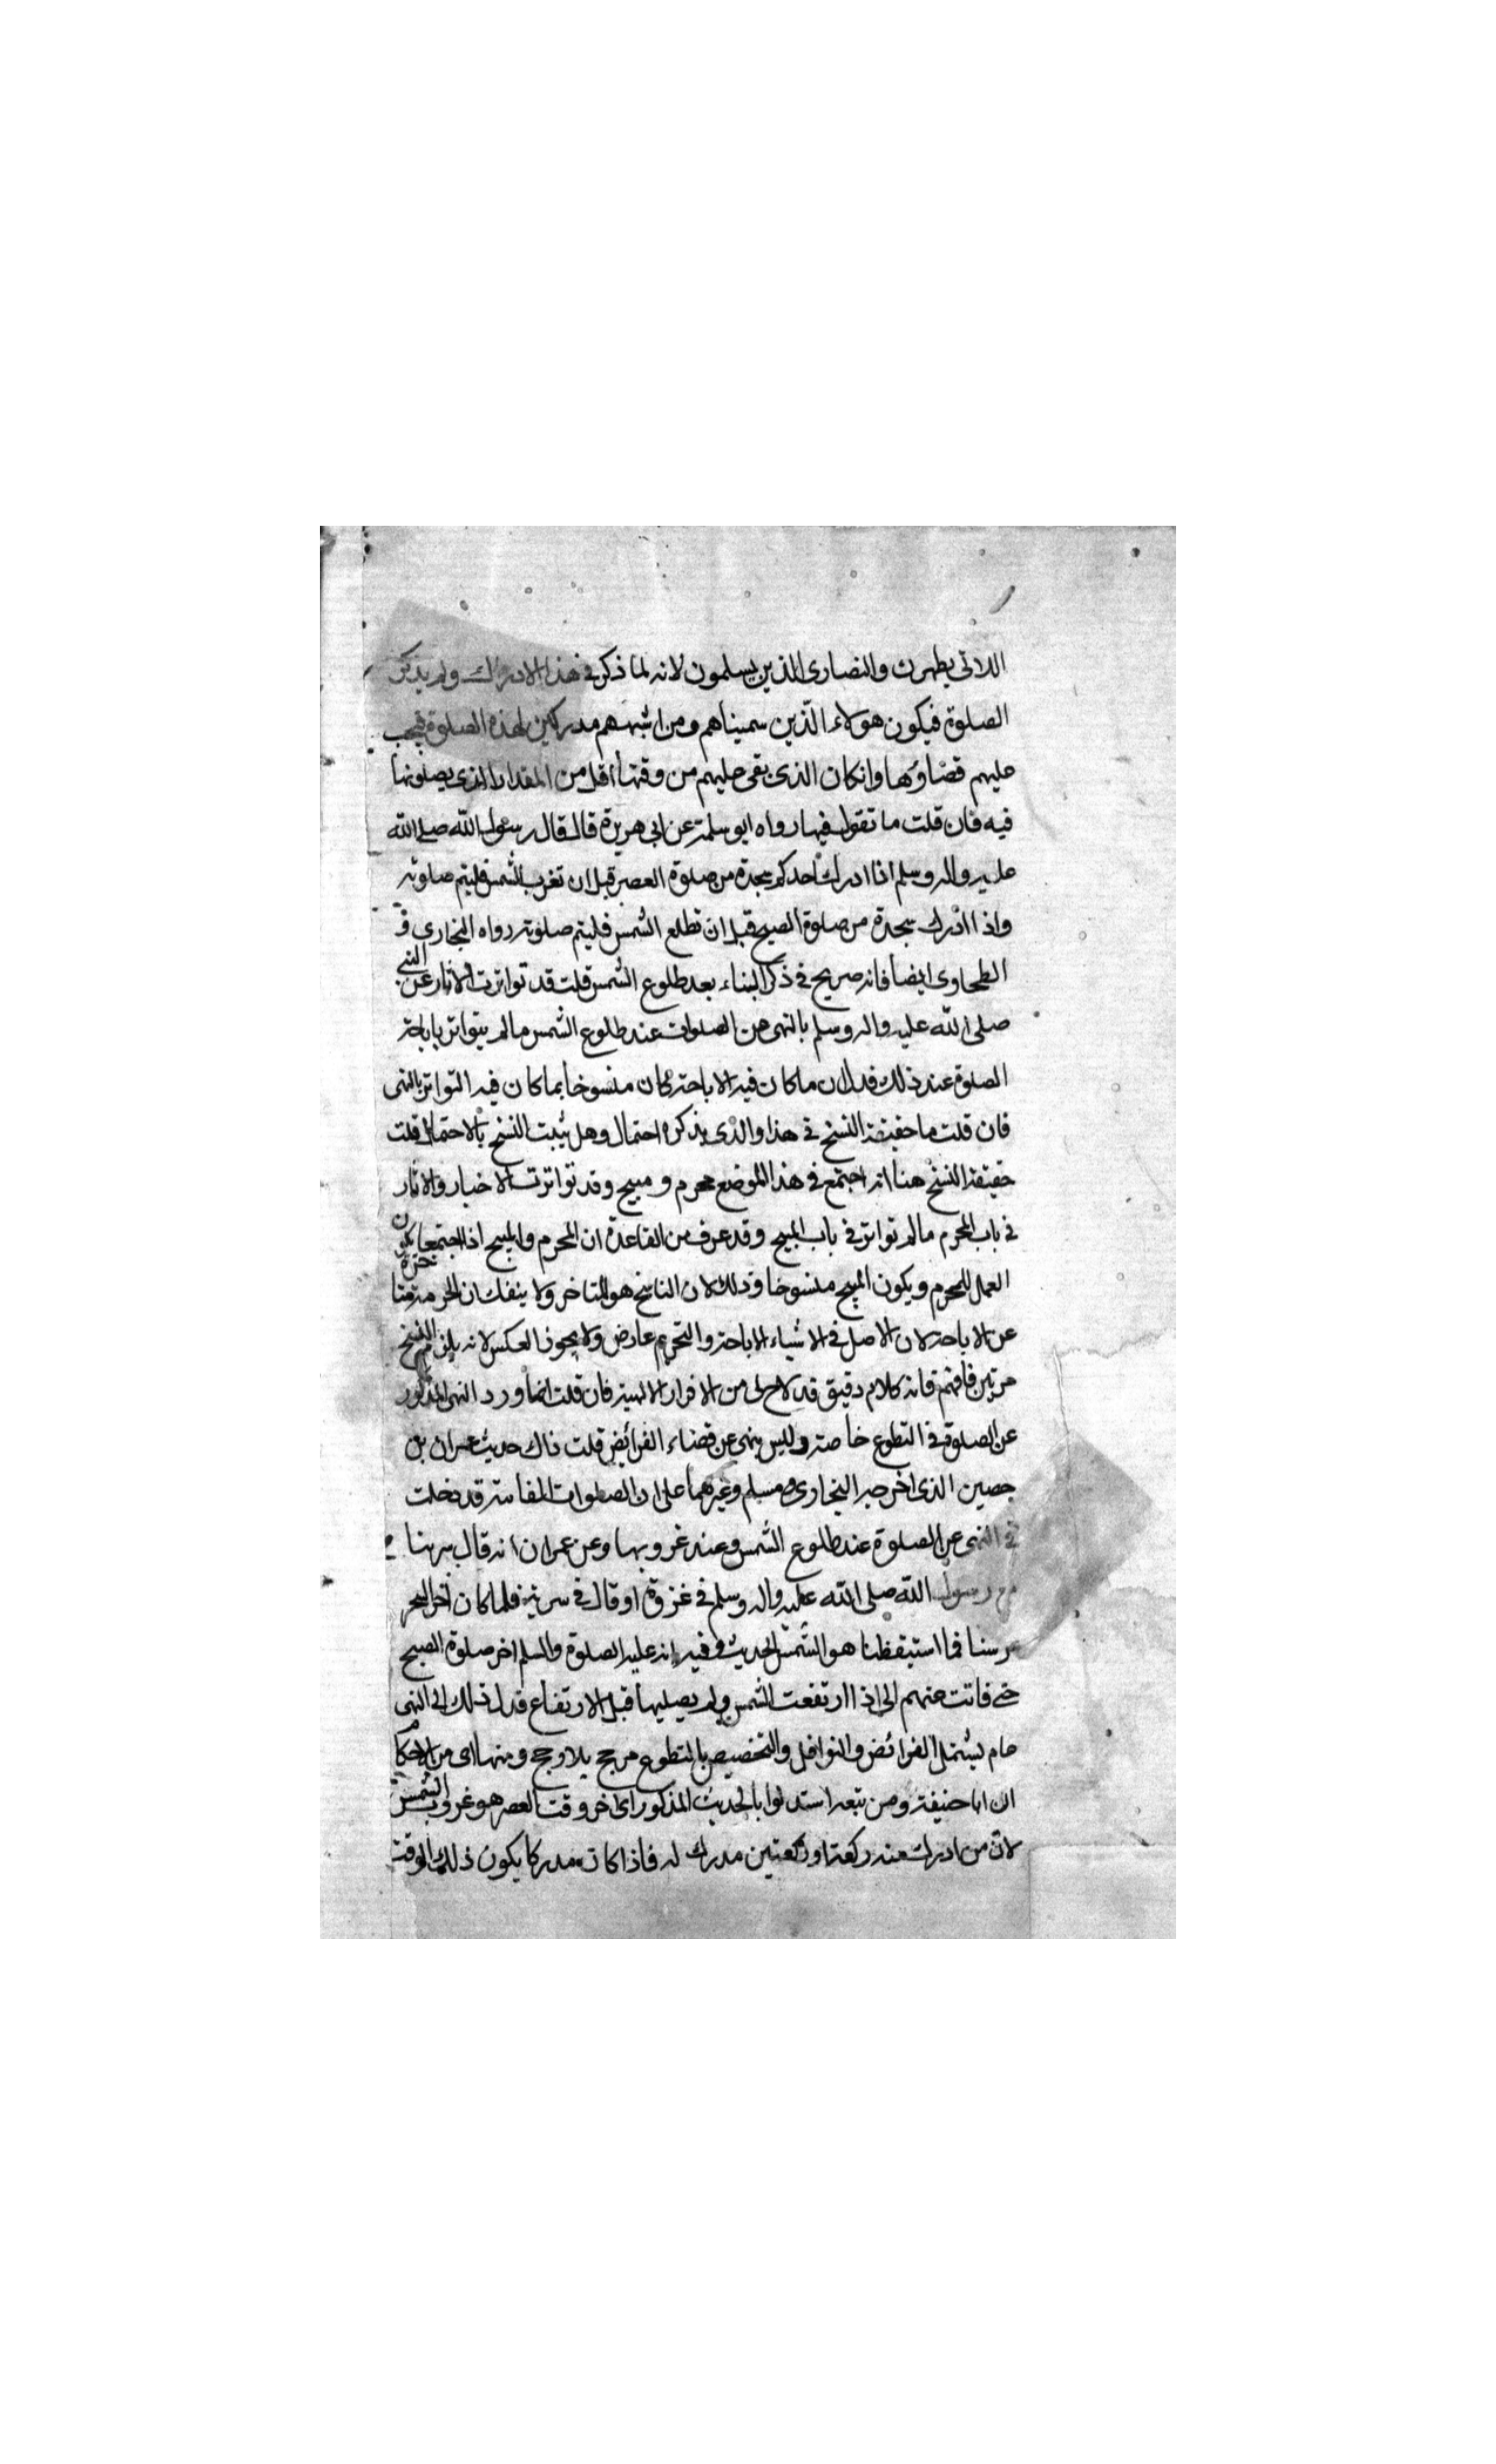 اللاتى يطهرن والنصارى الذين يسلمون لانه لما ذكر فى هذا الادراك ولم يذكر
الصلوة فيكون هولاء الّذين سميناهم ومن اشبههم مدركين لهذه الصلوة فيجب
عليهم قضاؤها وانكان الذى بقى عليهم من وقتها أقل من المقدار الذى يصلونها
فيه فان قلت ما تقول فيما رواه ابو سلمة عن ابى هريرة قال قال رسول الله صلى الله
عليه واله وسلم اذا ادرك أحدكم سجدة من صلوة العصر قبل ان تغرب الشمس فليتم صلوته
واذا ادرك سجدة من صلوة الصبح قبل ان تطلع الشمس فليتم صلوته رواه البخارى و
الطحاوى ايضا فانه صريح فى ذكر البناء بعد طلوع الشمس قلت قد تواترت الاثار عن النبى
صلى الله عليه واله وسلم بالنهى عن الصلوات عند طلوع الشمس مالم يتواتر باباحة
الصلوة عند ذلك فدل ان ماكان فيه الاباحة كان منسوخا بما كان فيه التواتر بالنهى
فان قلت ما حقيقة النسخ فى هذا والذى يذكره احتمال وهل يثبت النسخ بالاحتمال قلت
حقيقة النسخ هنا انه اجتمع فى هذا الموضع محرم و مبيح وقد تواترت الاخبار والاثار
فى باب المحرم مالم تواتر فى باب المبيح وقد عرف من القاعدة ان المحرم والمبيح اذا اجتمعا يكون
العمل للمحرم ويكون المبيح منسوخا وذلك لان الناسخ هو المتاخر ولا ينفك ان الحرمة متاخرة
عن الاباحة لان الاصل فى الاشياء الاباحة والتحريم عارض ولا يجوز العكس لانه يلزم النسخ
مرتين فافهم فانه كلام دقيق قد لاح لى من الانوار الالهية فان قلت انما ورد النهى المذكور
عن الصلوة فى التطوع خاصة وليس بنهى عن قضاء الفرائض قلت ذاك حديث عمران بن
حصين الذى اخرجه البخارى ومسلم وغيرهما على ان الصلوات الفائتة قد دخلت
فى النهى عن الصلوة عند طلوع الشمس وعند غروبها وعن عمران انه قال سرينا
مع رسول الله صلى الله عليه واله وسلم فى غزوة او قال فى سرية فلما كان اخر السحر
عرسنا فما استيقظنا هو الشمس الحديث وفيه انه عليه الصلوة والسلم اخر صلوة الصبح
حتى فاتت عنهم الى اذا ارتفعت الشمس ولم يصليها قبل الارتفاع فدل ذلك الى النهى
عام يشتمل الفرائض والنوافل والتخصيص بالتطوع مرجح بلا وجح ومنها اى من الاحكام
ان ابا حنيفة ومن تبعه استدلوا بالحديث المذكور اى اخر وقت العصر هو غروب الشمس
لان من ادرك عنه ركعة او ركعتين مدرك له فاذا كان مدركا يكون ذلك الوقت